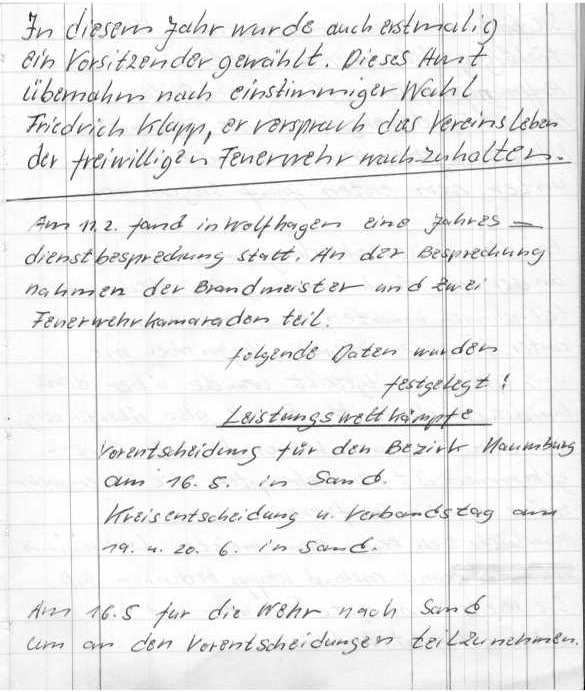 In diesem Jahr wurde auch erstmalig
ein Vorsitzender gewählt. Dieses Amt
übernahm nach einstimmiger Wahl
Friedrich Klapp, er versprach das Vereinsleben
der freiwilligen Feuerwehr wachzuhalten.
Am 11.2. fand in Wolfhagen eine Jahres-
dienstbesprechung statt. An der Besprechung
nahmen der Brandmeister und zwei
Feuerwehrkamaraden teil.
folgende Daten wurden
festgelegt!
Leistungswettkämpfe
Vorentscheidung für den Bezirk Naumburg
am 16.5. in Sand.
Kreisentscheidung u. Verbandstag am
19. u. 20. 6. in Sand.
Am 16.5 fur die Wehr nach Sand
um an den Vorentscheidungen teilzunehmen.